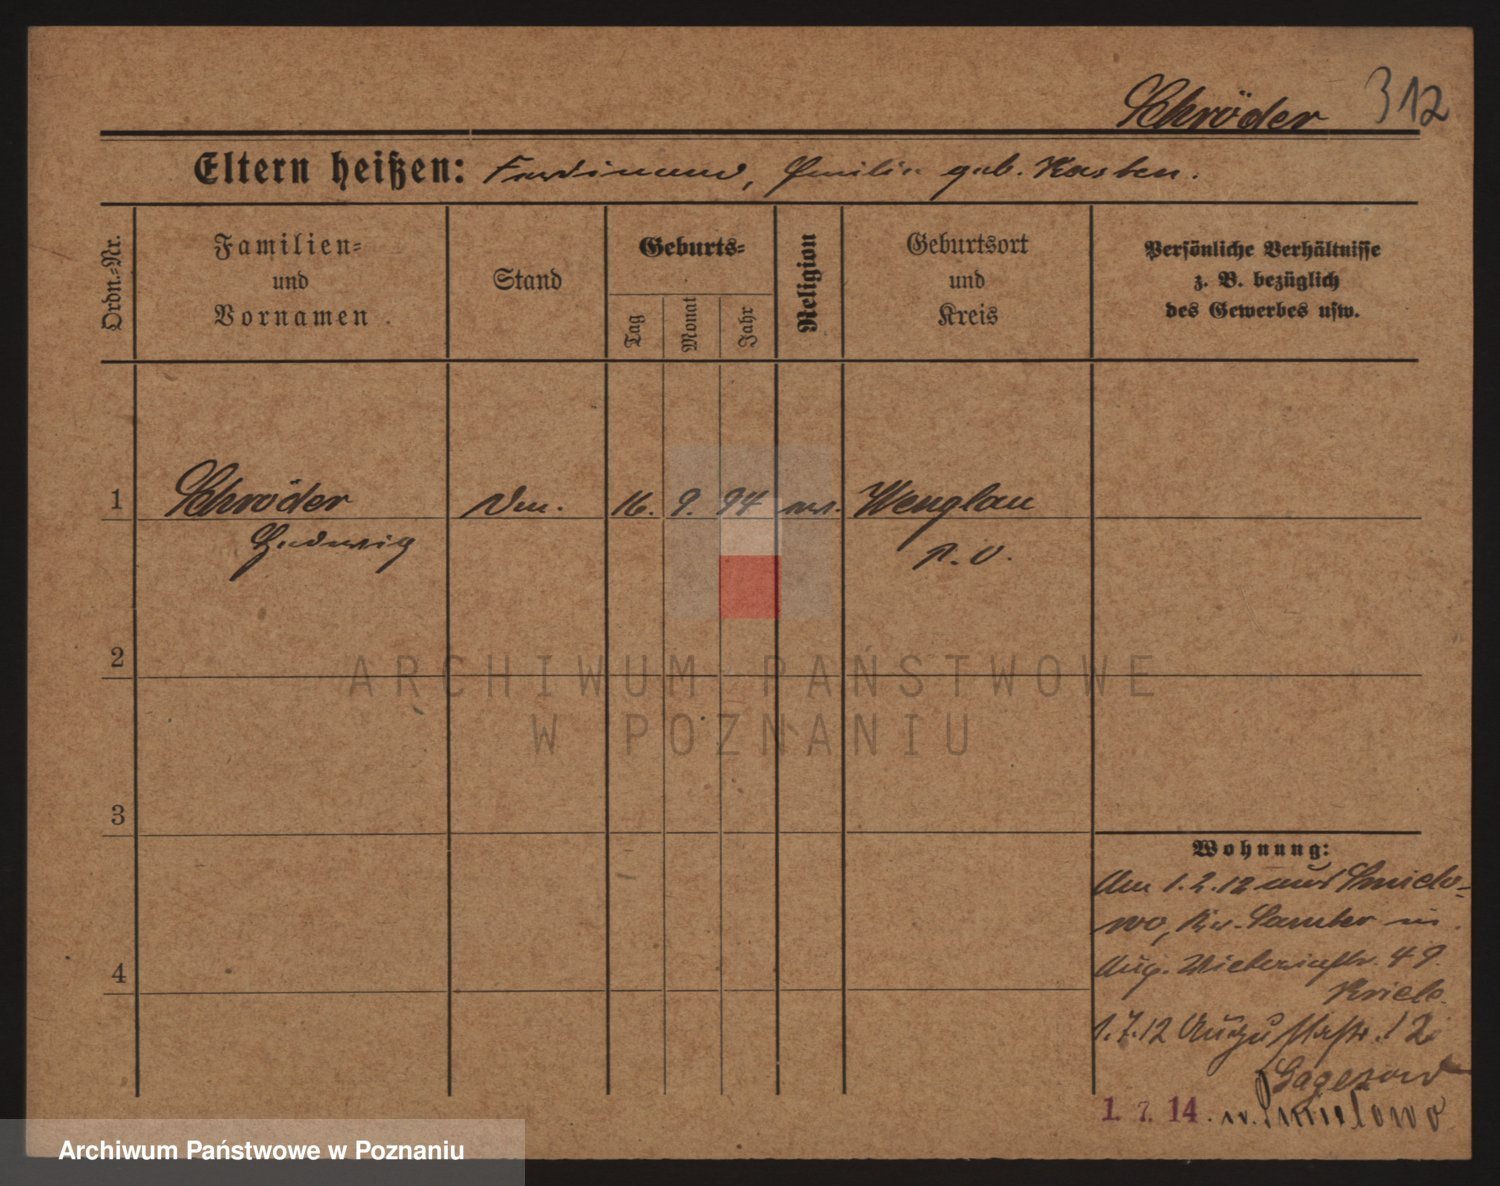 Schröder 312
Eltern heißen: Ferdinand, Emilie geb. Kasten.
Ordn.-Nr.
Familien-
und
Vornamen
Stand
Geburts-
Tag
Monat
Jahr
Religion
Geburtsort
und
Kreis
Persönliche Verhältnisse
z. B. bezüglich
des Gewerbes usw.
1 Schröder 16. 9. 94 Wenglau
Ludwig
2
3
4
Wohnung:
Am 1.2.12 aus Smielo-
wo, Kr. Samter in
Aug. 49.
1.7.12 Augustastr. 12
1. 7. 14. n. Smielowo
ARCHIWUM PAŃSTWOWE
W POZNANIU
Archiwum Państwowe w Poznaniu